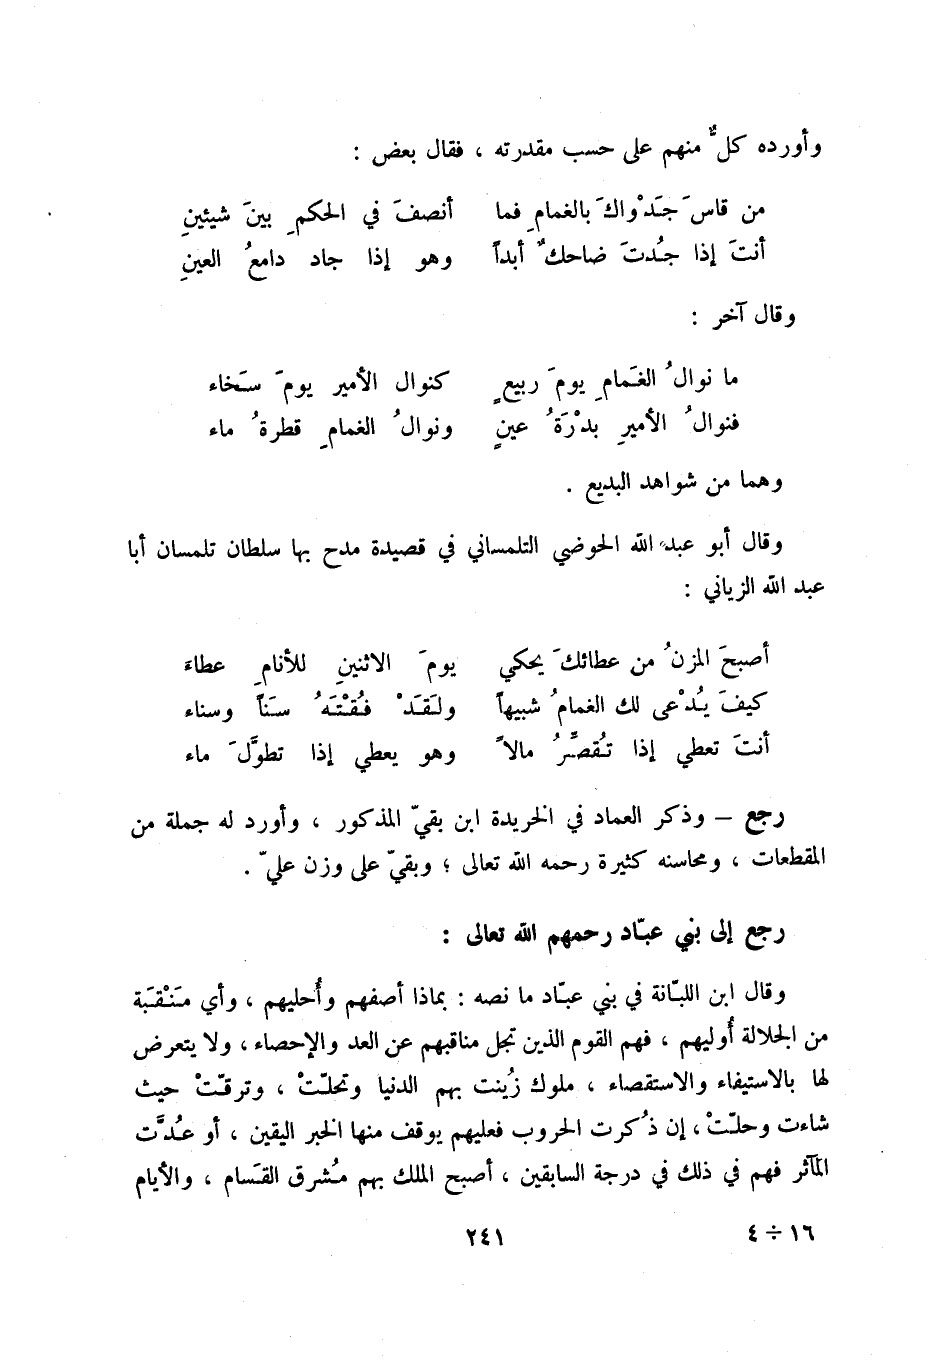 وأورده كلٌّ منهم على حسب مقدرته ، فقال بعض :
من قاسَ جَدْواكَ بالغمامِ فما أنصفَ في الحكمِ بينَ شيئينِ
أنتَ إذا جُدتَ ضاحكٌ أبداً وهو إذا جاد دامعُ العينِ
وقال آخر :
ما نوالُ الغَمامِ يومَ ربيعٍ كنوال الأمير يومَ سَخاء
فنوالُ الأميرِ بدْرَةُ عينٍ ونوالُ الغمامِ قطرةُ ماء
وهما من شواهد البديع .
وقال أبو عبد الله الحوضي التلمساني في قصيدة مدح بها سلطان تلمسان أبا
عبد الله الزياني :
أصبحَ المزنُ من عطائكَ يحكي يومَ الاثنينِ للأنامِ عطاءَ
كيفَ يُدْعى لك الغمامُ شبيهاً ولَقَدْ فُقْتَهُ سَناً وسناء
أنتَ تعطي إذا تُقصِّرُ مالاً وهو يعطي إذا تطوَّلَ ماء
رجع – وذكر العماد في الخريدة ابن بقيّ المذكور ، وأورد له جملة من
المقطعات ، ومحاسنه كثيرة رحمه الله تعالى ؛ وبقيّ على وزن عليّ .
رجع إلى بني عبّاد رحمهم الله تعالى :
وقال ابن اللبّانة في بني عبّاد ما نصه : بماذا أصفهم وأُحليهم ، وأي مَنْقَبَة
من الجلالة أُوليهم ، فهم القوم الذين تجل مناقبهم عن العد والإحصاء ، ولا يتعرض
لها بالاستيفاء والاستقصاء ، ملوك زُينت بهم الدنيا وتحلّتْ ، وترقّتْ حيث
شاءت وحلّتْ ، إن ذُكرت الحروب فعليهم يوقف منها الخبر اليقين ، أو عُدَّت
المآثر فهم في ذلك في درجة السابقين ، أصبح الملك بهم مُشرق القَسام ، والأيام
١٦ ÷ ٤
٢٤١